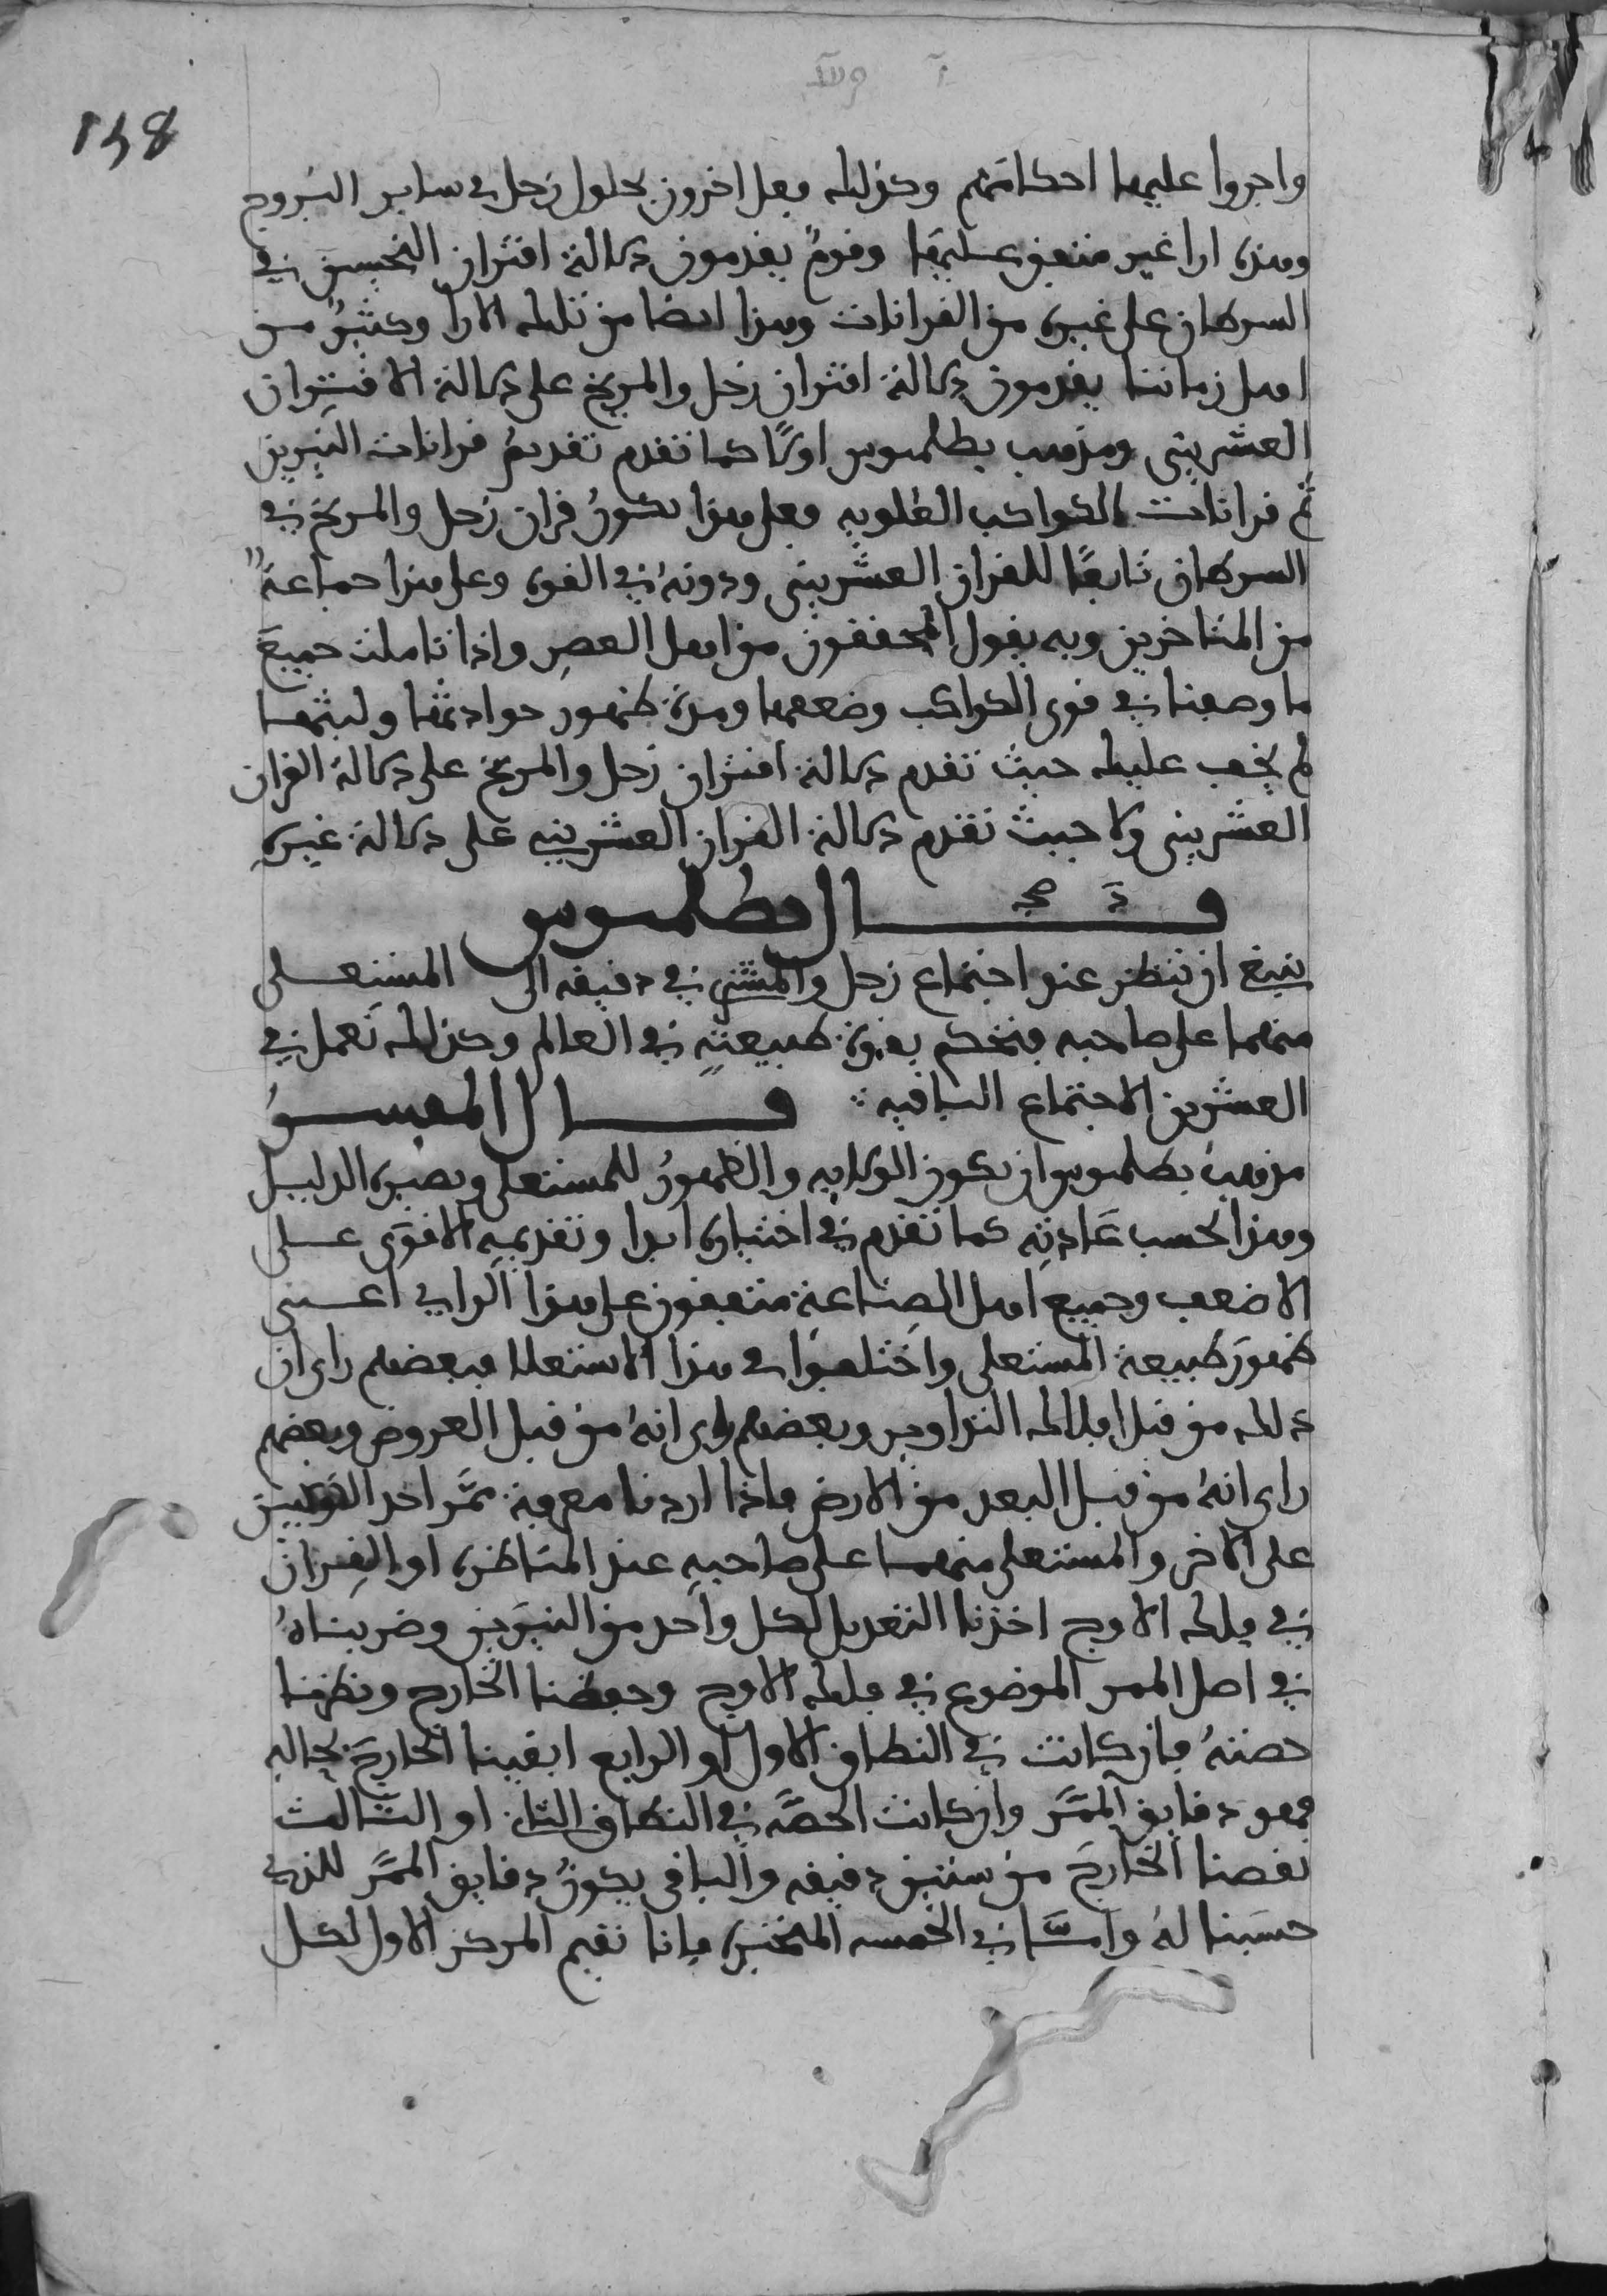 148
واجروا عليها احكامهم وكذلك فعل اخرون بحلول زحل في ساير البروج
وهذه ارا غير متفق عليها وقوم يقدمون دلالة اقتران النحسين في
السرطان على غيره من القرانات وهذا ايضا من تلك الارا وكثير من
اهل زماننا يقدمون دلالة اقتران زحل والمريخ على دلالة الاقتران
العشريني ومذهب بطلميوس اولًا كما تقدم تقديمُ قرانات النيرين
ثم قرانات الكواكب العلويه فعلى هذا يكونُ قران زحل والمريخ في
السرطان تابعًا للقران العشريني ودونه في القوه وعلى هذا جماعةٌ
من المتاخرين وبه يقول المحققون من اهل العصرِ واذا تاملت جميعَ
ما وصفنا في قوى الكواكب وضعفها ومدة ظهور حوادثها ولبثها
لم يخف عليك حيث تقدم دلالة اقتران زحل والمريخ على دلالة القران
العشريني ولا حيث تقدم دلالة القران العشريني على دلالة غيره
قال بطلميوس
ينبغي ان تنظر عند اجتماع زحل والمشتري في دقيقه الى المستعلي
منهما على صاحبه فتحكم بقوة طبيعتهِ في العالم وكذلك تعمل في
العشرين الاجتماع الباقيه قال المفسرُ
مذهبُ بطلميوس ان يكون الولايه والظهورُ للمستعلي ويصيره الدليل
وهذا بحسب عَادتِه كما تقدم في اختياره ابدا وتقديمِهِ الاقوى على
الاضعف وجميع اهل الصناعة متفقون على هذا الراي اعني
ظهورَ طبيعة المستعلي واختلفوا في هذا الاستعلا فبعضهم راى ان
ذلك من قبل افلاك التداوير وبعضهم راى انهُ من قبل العروض وبعضهم
راى انهُ من قبل البعد من الارض فاذا اردنا معرفة ممَّر احد الكوكبين
على الاخر والمستعلي منهما على صاحبهِ عند المناظره او القِران
في فلك الاوج اخذنا التعديل لكل واحد من النيرَين وضربناهُ
في اصل الممر الموضوع في فلك الاوج وحفظنا الخارج ونظرنا
حصتهُ فان كانت في النطاق الاول او الرابع ابقينا الخارجَ بحاله
فهو دقايق الممَّر وان كانت الحصَّه في النطاق الثاني او الثالث
نقصنا الخارجَ من ستين دقيقه والباقي يكونُ دقايق الممَّر للذي
حسَبنا لهُ وامَّا في الخمسه المتحيره فانا نقيم المركز الاول لكل